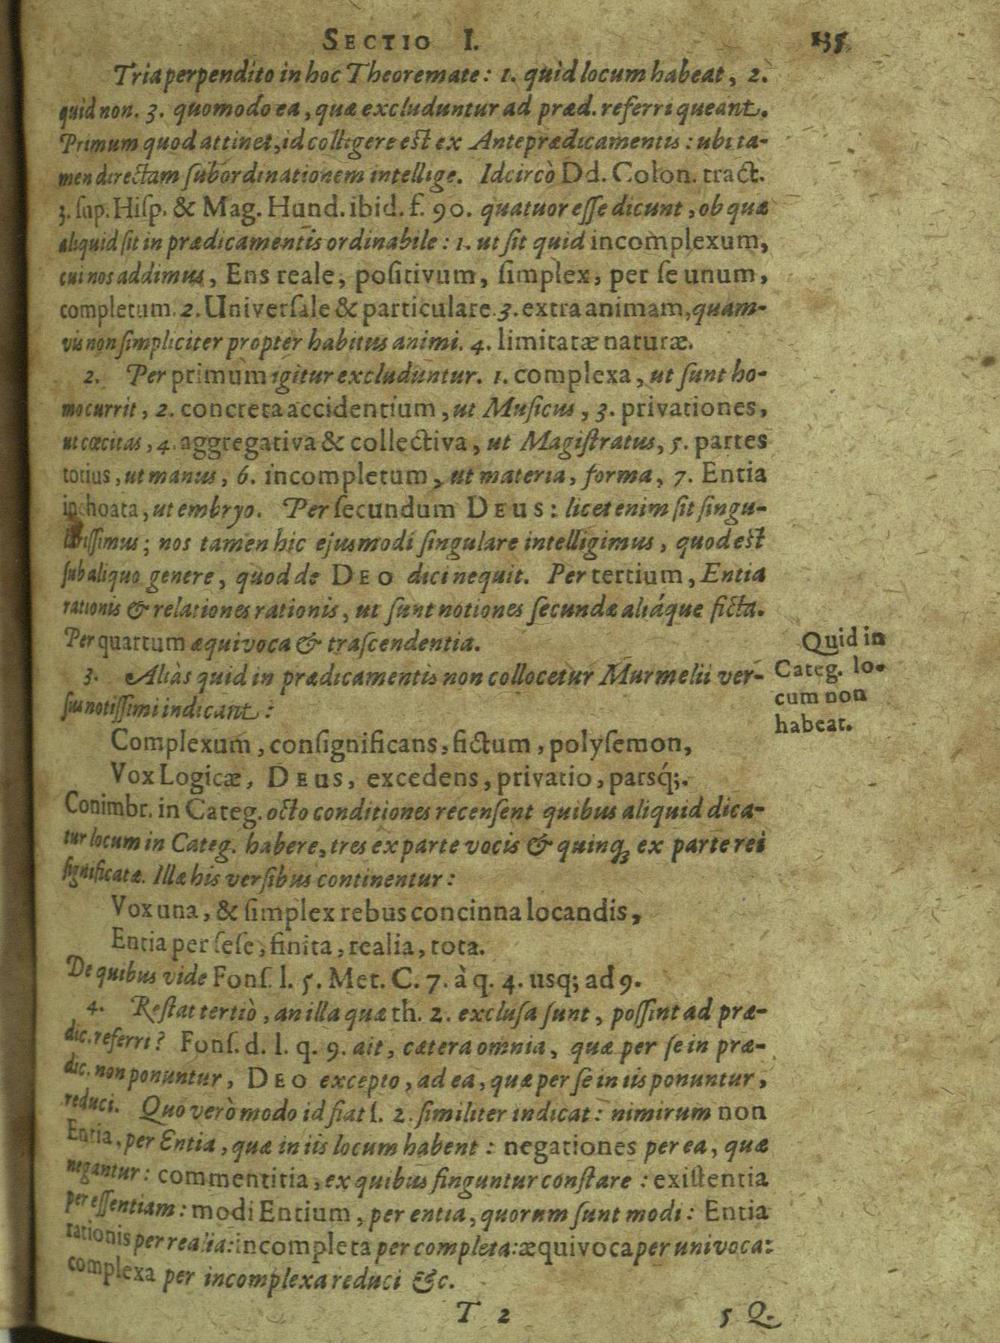 SECTIO I. 135
Tria perpendito in hoc Theoremate: 1. quid locum habeat, 2.
quid non. 3. quomodo ea, quæ excluduntur ad præd. referri queant.
Primum quod attinet, id colligere est ex Anteprædicamentis: ubi ta-
men directam subordinationem intellige. Idcircò Dd. Colon. tract.
3. sup. Hisp. & Mag. Hund. ibid. f. 90. quatuor esse dicunt, ob quæ
aliquid sit in prædicamentis ordinabile: 1. ut sit quid incomplexum,
cui nos addimus, Ens reale, positivum, simplex, per se unum,
completum. 2. Universale & particulare. 3. extra animam, quam-
vis non simpliciter propter habitus animi. 4. limitatæ naturæ.
2. Per primum igitur excluduntur. 1. complexa, ut sunt ho-
mo currit, 2. concreta accidentium, ut Musicus, 3. privationes,
ut cœcitas, 4. aggregativa & collectiva, ut Magistratus, 5. partes
totius, ut manus, 6. incompletum, ut materia, forma, 7. Entia
inchoata, ut embryo. Per secundum DEUS: licet enim sit singu-
larissimus; nos tamen hic ejusmodi singulare intelligimus, quod est
sub aliquo genere, quod de DEO dici nequit. Per tertium, Entia
rationis & relationes rationis, ut sunt notiones secundæ aliáque ficta.
Per quartum æquivoca & trascendentia.
3. Aliàs quid in prædicamentis non collocetur Murmelii ver-
sus notissimi indicant:
Quid in
Categ. lo-
cum non
habeat.
Complexum, consignificans, fictum, polysemon,
Vox Logicæ, DEUS, excedens, privatio, parsq́;.
Conimbr. in Categ. octo conditiones recensent quibus aliquid dica-
tur locum in Categ. habere, tres ex parte vocis & quinq; ex parte rei
significatæ. Illæ his versibus continentur:
Vox una, & simplex rebus concinna locandis,
Entia per sese, finita, realia, tota.
De quibus vide Fons. l. 5. Met. C. 7. à q. 4. usq; ad 9.
4. Restat tertiò, an illa quæ th. 2. exclusa sunt, possint ad præ-
dic. referri? Fons. d. l. q. 9. ait, cætera omnia, quæ per se in præ-
dic. non ponuntur, DEO excepto, ad ea, quæ per se in iis ponuntur,
reduci. Quo verò modo id fiat l. 2. similiter indicat: nimirum non
Entia, per Entia, quæ in iis locum habent: negationes per ea, quæ
negantur: commentitia, ex quibus finguntur constare: existentia
per essentiam: modi Entium, per entia, quorum sunt modi: Entia
rationis per realia: incompleta per completa: æquivoca per univoca:
complexa per incomplexa reduci &c.
T 2 5 Q.